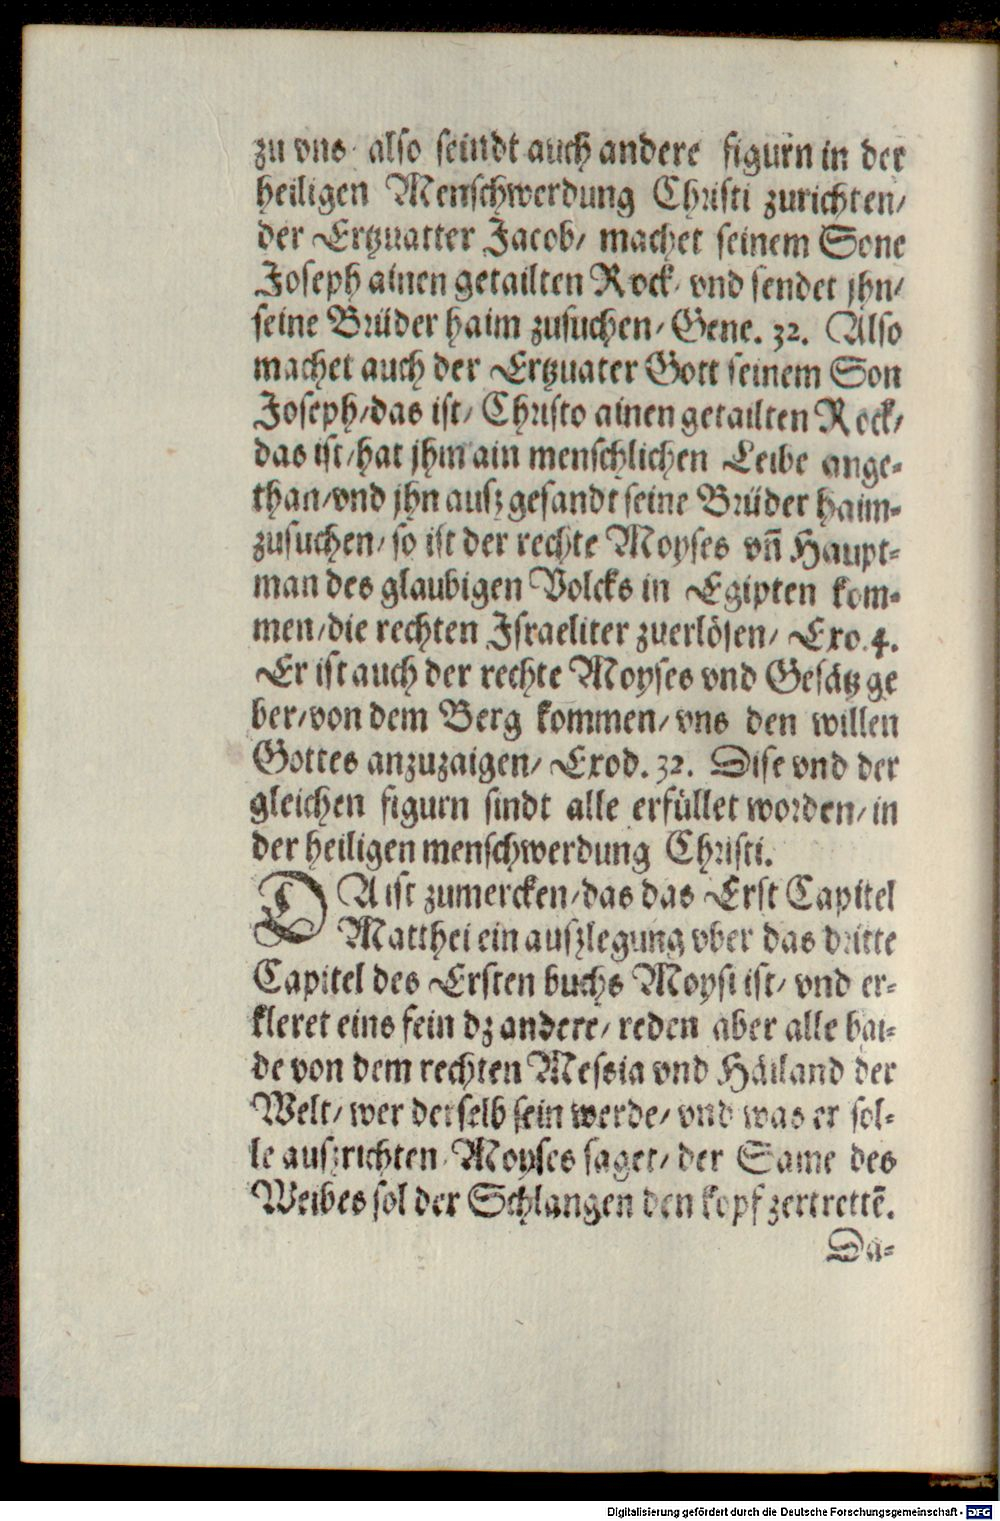 zu vns / also seindt auch andere figurn in der
heiligen Menschwerdung Christi zurichten/
der Ertzuatter Jacob/ machet seinem Sone
Joseph ainen getailten Rock/ vnd sendet jhn/
seine Brüder haim zusuchen/ Gene. 32. Also
machet auch der Ertzuater Gott seinem Son
Joseph/das ist/ Christo ainen getailten Rock/
das ist/hat jhm ain menschlichen Leibe ange-
than/vnd jhn ausz gesandt seine Brüder haim-
zusuchen/ so ist der rechte Moyses vn̄ Haupt-
man des glaubigen Volcks in Egipten kom-
men/die rechten Jsraeliter zuerlösen/ Exo.4.
Er ist auch der rechte Moyses vnd Gesätz ge
ber/von dem Berg kommen/ vns den willen
Gottes anzuzaigen/ Exod. 32. Dise vnd der
gleichen figurn sindt alle erfüllet worden/ in
der heiligen menschwerdung Christi.
DA ist zumercken/das das Erst Capitel
Matthei ein auszlegung vber das dritte
Capitel des Ersten buchs Moysi ist/ vnd er-
kleret eins fein dz andere/ reden aber alle bai-
de von dem rechten Messia vnd Häiland der
Welt/ wer derselb sein werde/ vnd was er sol-
le auszrichten/ Moyses saget/ der Same des
Weibes sol der Schlangen den kopf zertrettē.
Da-
Digitalisierung gefördert durch die Deutsche Forschungsgemeinschaft - DFG